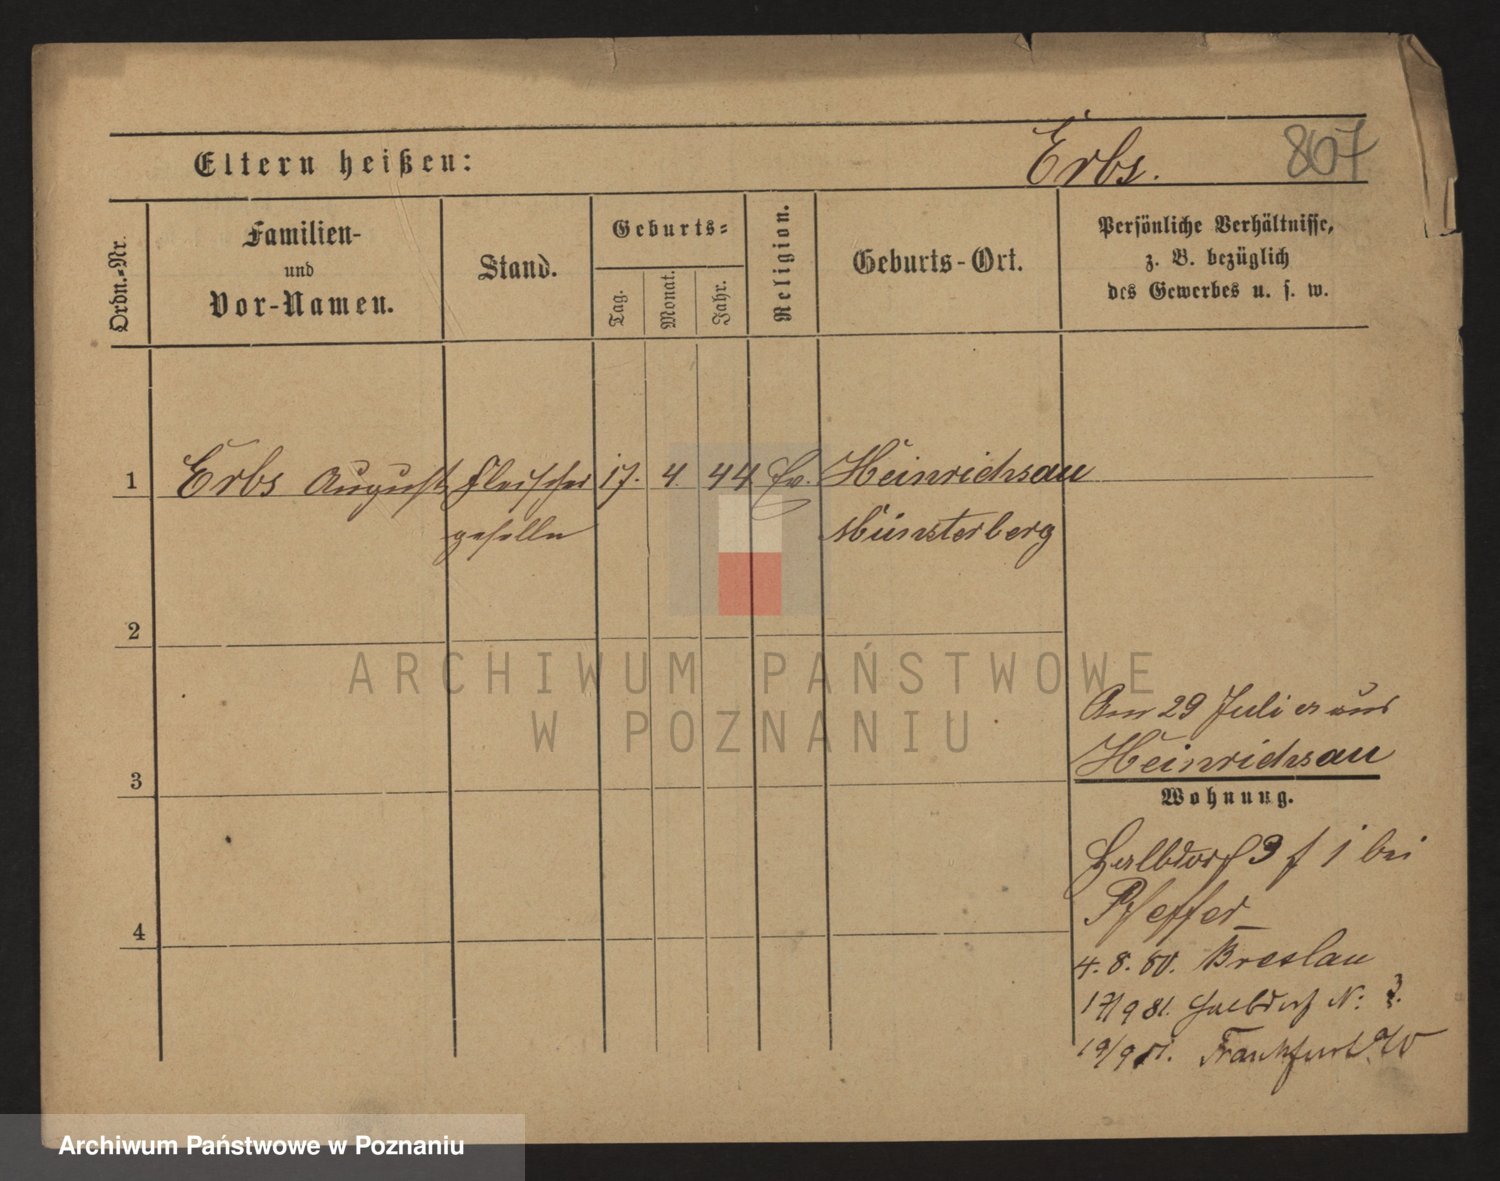 Eltern heißen:
Erbs.
807
Ordn.=Nr.
Familien-
und
Vor-Namen.
Stand.
Geburts=
Tag.
Monat.
Jahr.
Religion.
Geburts-Ort.
Persönliche Verhältnisse,
z. B. bezüglich
des Gewerbes u. s. w.
1 Erbs August Fleischer 17. 4 44 Ev. Heinrichsau
geselle Münsterberg
2
ARCHIWUM PAŃSTWOWE
W POZNANIU
Am 29 Juli aus
Heinrichsau
3
Wohnung.
Halbdorf 3 f 1 bei
Pfeffer
4
4. 8. 80. Breslau
17/9 81. Halbdorf N: 3.
19/9 81. Frankfurt a/O
Archiwum Państwowe w Poznaniu